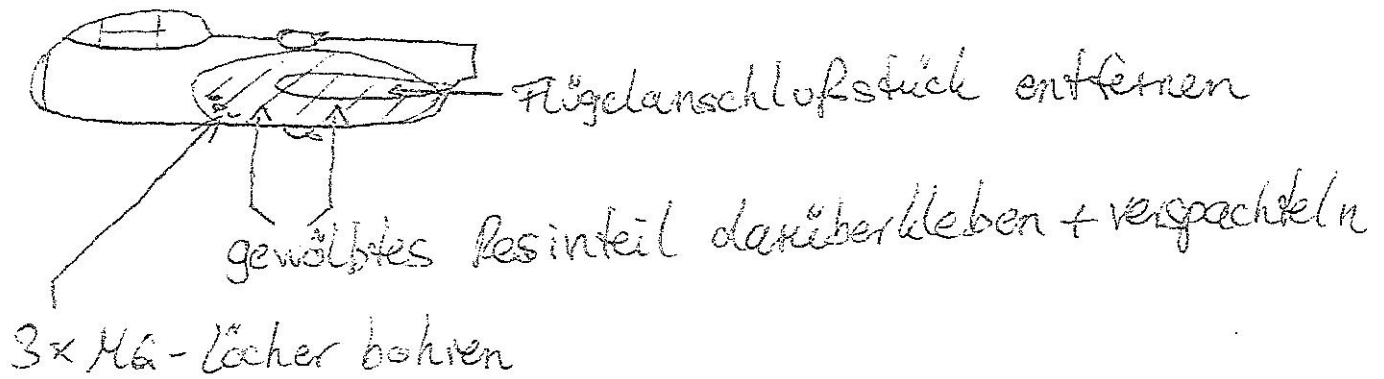 Flügelanschlußstück entfernen
gewölbtes Resinteil darüberkleben + verspachteln
3x MG-Löcher bohren